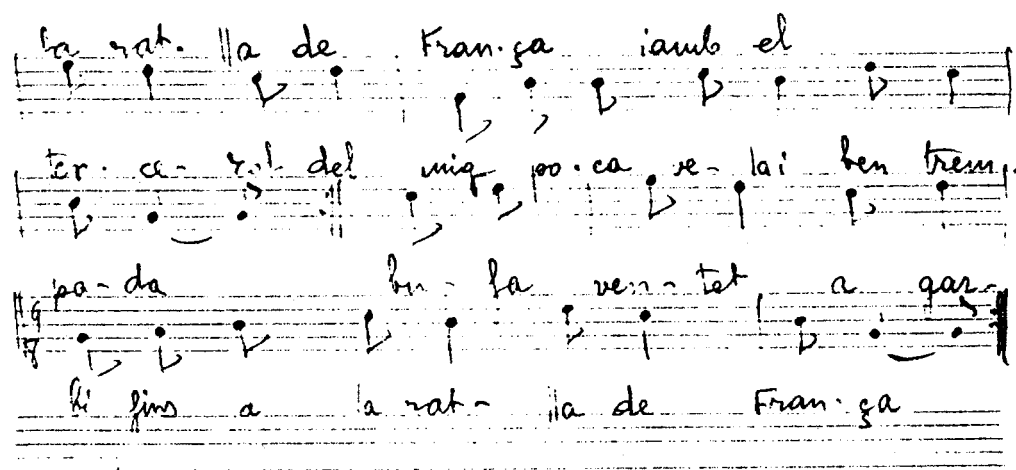 la rat- lla de Fran-ça iamb el
ter-ce-rol del mig po-ca ve-lai ben trem-
pa-da bu-fa ven-tet a gar-
bi fins a la rat- lla de Fran-ça